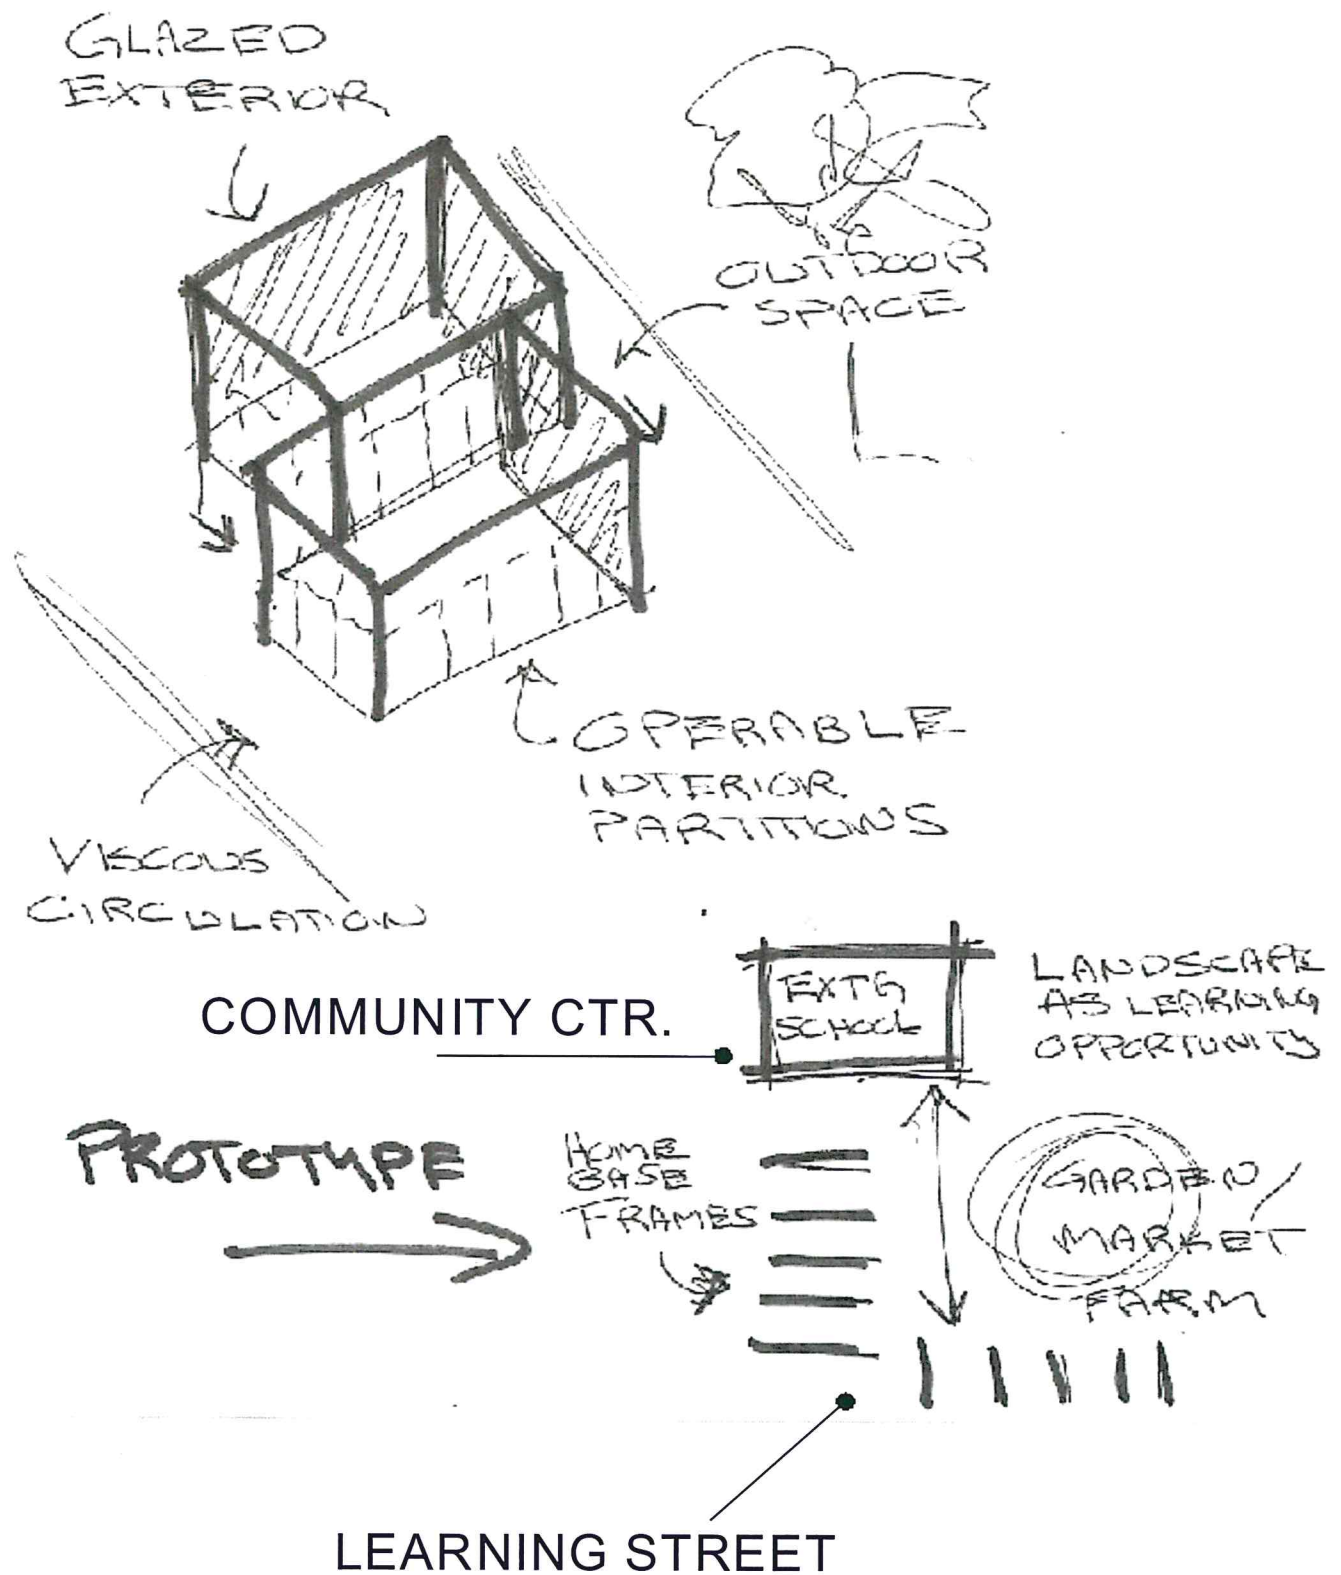 GLAZED
EXTERIOR
OUTDOOR
SPACE
OPERABLE
INTERIOR
PARTITIONS
VISCOUS
CIRCULATION
EXTG
SCHOOL
LANDSCAPE
AS LEARNING
OPPORTUNITY
COMMUNITY CTR.
PROTOTYPE
HOME
BASE
FRAMES
GARDEN/
MARKET
FARM
LEARNING STREET